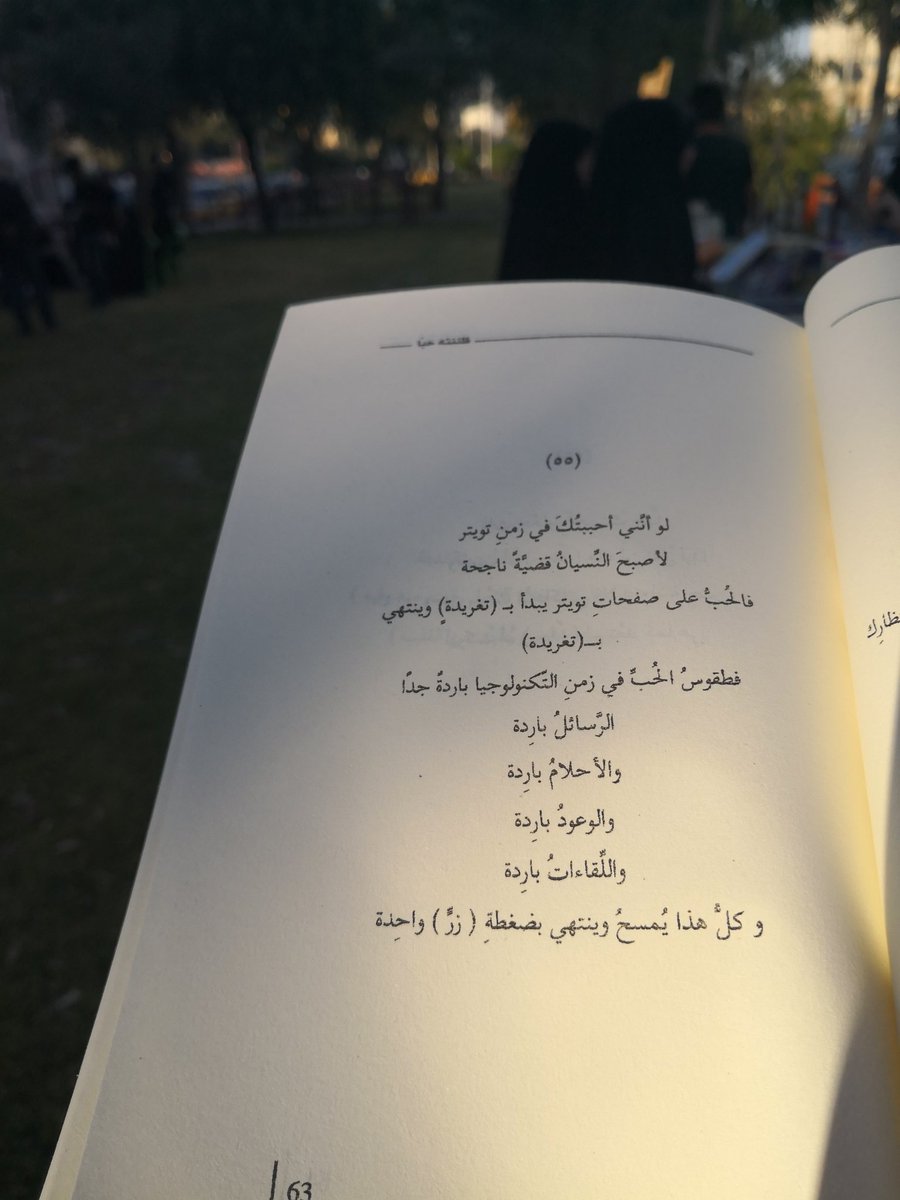 (٥٥)
لو أنَّني أحببتُكَ في زمنِ تويتر
لأصبحَ النِّسيانُ قضيَّةً ناجحة
فالحُبُّ على صفحاتِ تويتر يبدأ بـ (تغريدةٍ) وينتهي
بــ(تغريدة)
فطقوسُ الحُبِّ في زمنِ التّكنولوجيا باردةٌ جدًا
الرَّسائلُ بارِدة
والأحلامُ بارِدة
والوعودُ بارِدة
واللِّقاءاتُ بارِدة
و كلُّ هذا يُمسحُ وينتهي بضغطةِ ( زرٍّ ) واحِدة
63